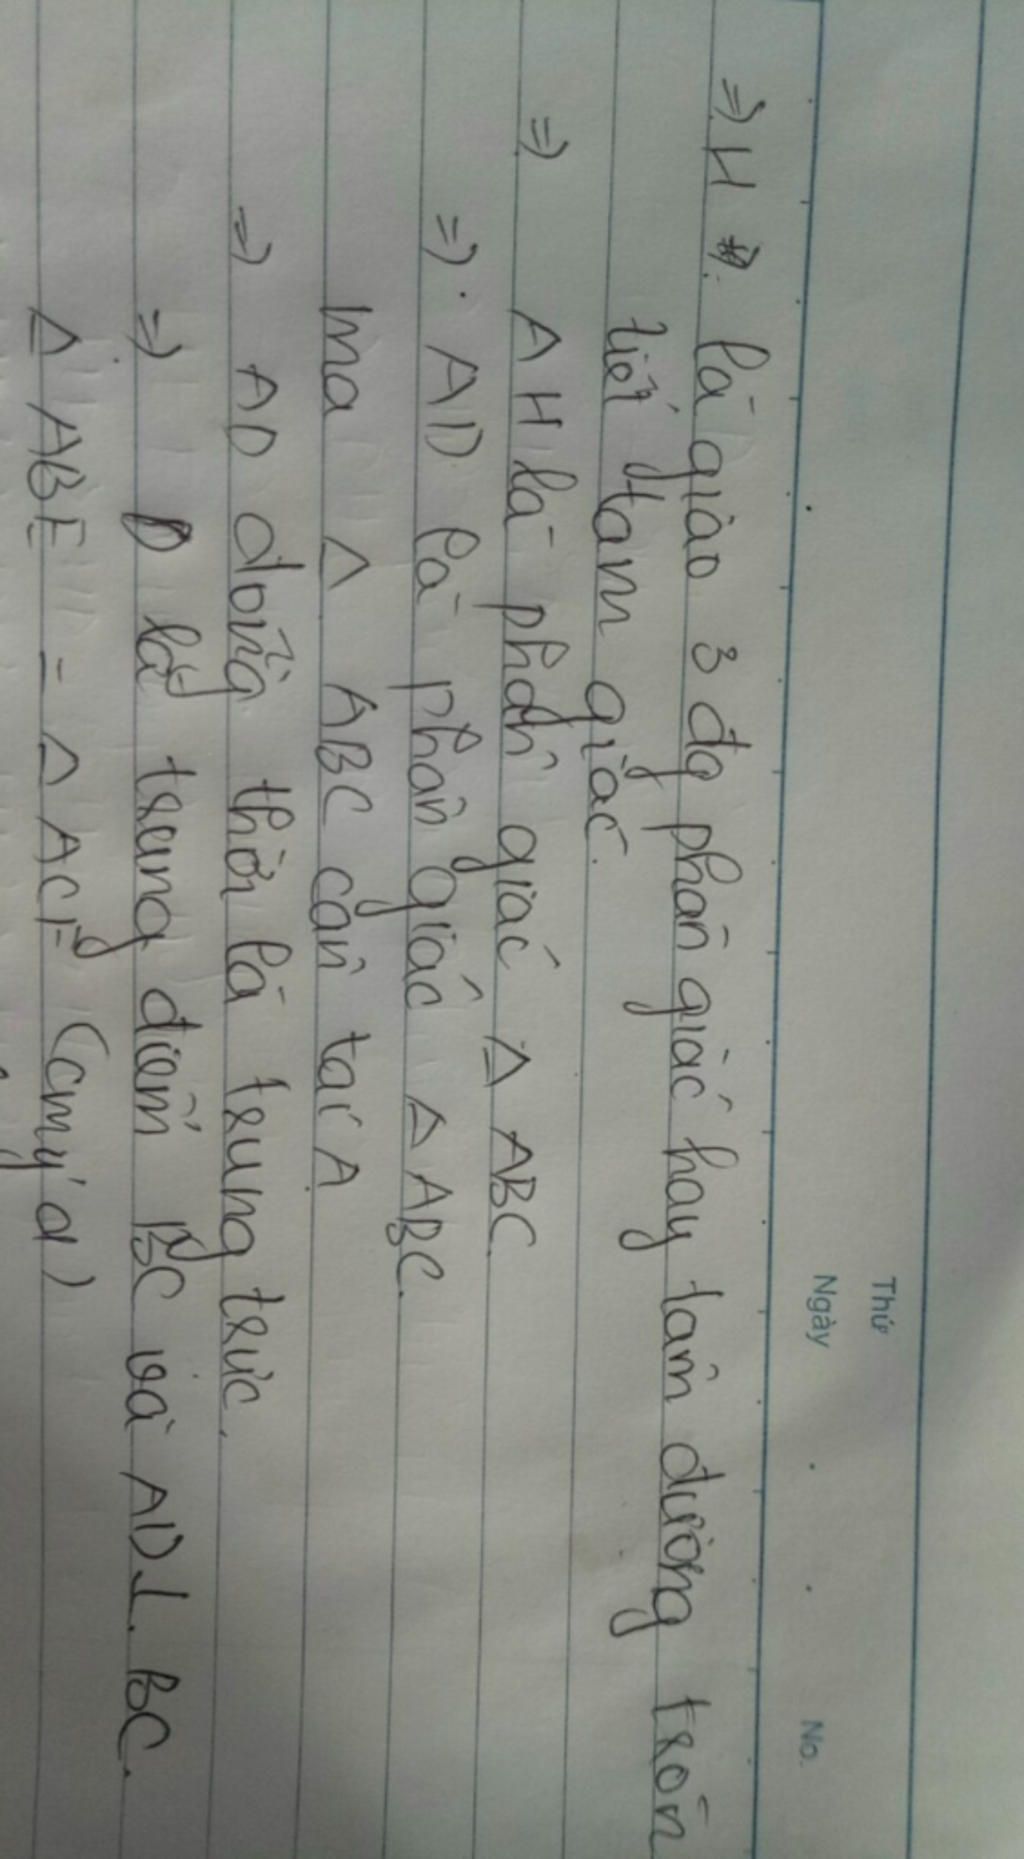 Thứ
Ngày
No.
=> H là giao 3 đg phân giác hay tâm đường tròn
tiếp tam giác.
=> AH là phân giác Δ ABC
=> AD là phân giác Δ ABC.
mà Δ ABC cân tại A
=> AD đồng thời là trung trực.
=> D là trung điểm BC và AD ⊥ BC.
Δ ABE = Δ ACF (cmý a)